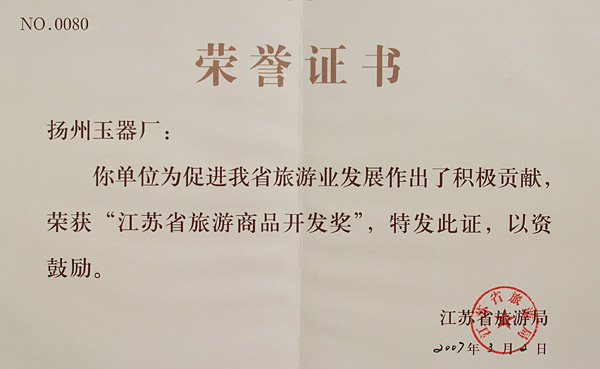 NO.0080
荣誉证书
扬州玉器厂：
你单位为促进我省旅游业发展作出了积极贡献，
荣获“江苏省旅游商品开发奖”，特发此证，以资
鼓励。
江苏省旅游局
江苏省旅游局
2007年3月 日